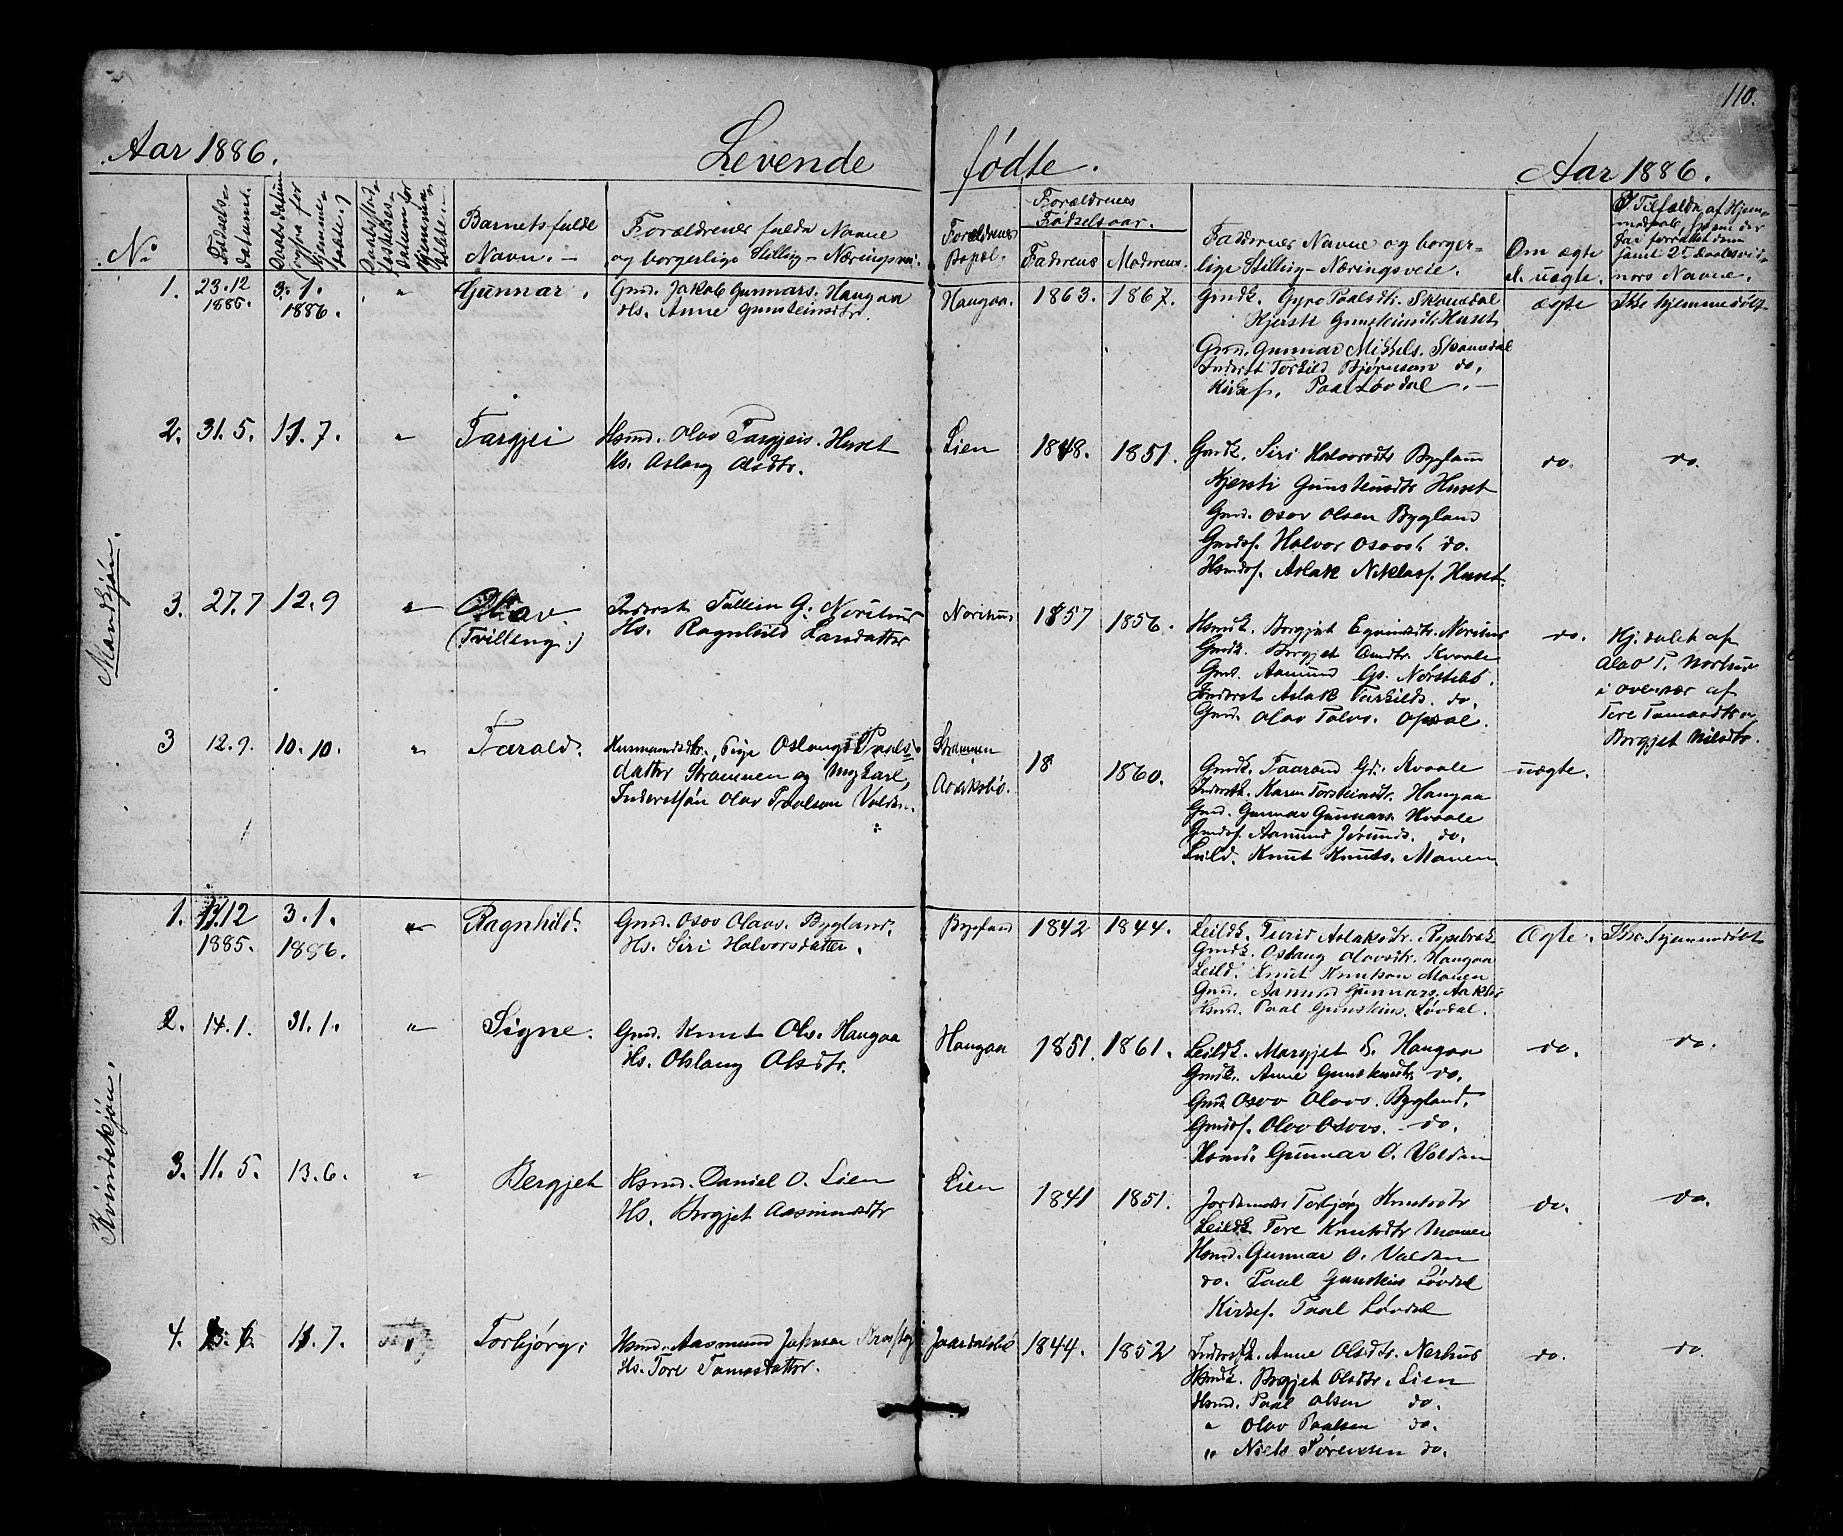 110.
Aar 1886. Levende fødte. Aar 1886.
No
Fødsels-
datum.
Daabsdatum
Barnets fulde
Navn. —
Forældrenes fulde Navne
og borgerlige Stilling - Næringsvei.
Forældrenes
Bopæl.
Forældrenes
Fødselsaar.
Faderens Moderens
Faddernes Navne og borger-
lige Stilling - Næringsveie.
Om ægte
el. uægte.
I Tilfælde af Hjem-
medaab, hvem der
har forrettet den
samt 2 Daabsvid-
ners Navne.
Mandkjøn.
1. 23.12
1885.
3. 1.
1886.
"
Gunnar.
Gmd. Jakob Gunnars. Haugaa
Hs. Anne Gunsteinsdtr.
Haugaa. 1863. 1867.
Gmdk. Gyro Paalsdtr. Skomedal
Kjersti Gunsteinsdtr. Huset
Gmd. Gunnar Mikkels. Skomedal
Inderst Torkild Bjørnson do.
Kirkes. Paal Løvdal. —
ægte
Ikke hjemmedøbt
2. 31. 5. 11. 7. "
Targjei
Hsmd. Olav Targjeis. Huset
Hs. Aslaug Olsdtr.
Lien 1848. 1851.
Gmdk. Siri Halvorsdtr Bygland
Kjersti Gunsteinsdtr Huset
Gmd. Osov Olsen Bygland
Gmds. Halvor Osovs. do.
Hsmds. Aslak Niklass. Huset
do. do.
3. 27. 7 12. 9 "
Olav
(Tvilling.)
Inderst Tallein G. Norihus
Hs. Ragnhild Larsdatter
Norihus 1857 1856.
Hsmdk. Borgjet Eyvindsdtr. Norihus
Gmdk. Borgjet Omdtr. Kvaale
Gmd. Aamund Gs. Nørstebø.
Inderst Aslak Tarkilds. do.
Gmd. Olav Talvs. Opdal.
do.
Hj. døbt af
Olav T. Norhus
i overvær af
Tore Tomasdtr og
Borgjet Nilsdtr.
3 12. 9. 10. 10. "
Tarald.
Husmandsdtr., Pige Oslaug Paals-
datter Strømmen og Ungkarl,
Inderstsøn Olav Paulson Valden.
Strømmen
Aaraksbø.
18 1860.
Gmdk. Taarand Gd. Kvaale
Inderstk. Karen Torsteinsdtr. Haugaa
Gmd. Gunnar Gunnars. Kvaale
Gmds. Aamund Jørunds. do.
Leild. Knut Knuts. Monen
uægte.
Kvindekjøn.
1. 17.12
1885.
3. 1.
1886.
"
Ragnhild.
Gmd. Osov Olavs. Bygland.
Hs. Siri Halvorsdatter.
Bygland 1842 1844.
Leildk. Turid Aslaksdtr.
Gmdk. Oslaug Olavsdtr. Haugaa
Leild. Knut Knutson Monen
Gmd. Aamund Gunnars.
Hsmd. Paal Gunsteins. Løvdal.
Ægte. Ikke hjemmedøbt
2. 14. 1. 31. 1. "
Signe.
Gmd. Knut Ols. Haugaa
Hs. Oslaug Olsdtr.
Haugaa 1851. 1861.
Leildk. Margjet G. Haugaa
Gmdk. Anne Gunsteinsdtr. do.
Gmd. Osov Olavs. Bygland.
Gmds. Olav Osovs. do.
Hsmd. Gunnar O. Valden
do. do.
3. 11. 5. 13. 6. "
Bergjet
Hsmd. Daniel O. Lien
Hs. Borgjet Aasmundsdtr
Lien 1841 1851.
Jordemoder Torbjørg Knutsdtr
Leildk. Tore Knutsdtr Monen
Hsmd. Gunnar O. Valden
do. Paal Gunsteins Løvdal
Kirkes. Paal Løvdal
do. do.
4. 13. 6. 11. 7. "
Torbjørg.
Hsmd. Aasmund Jakobsen
Hs. Tore Tomasdatter.
Jaardalsbø 1844. 1852
Inderstk. Anne Olsdtr. Nerhus
Hsmdk. Borgjet Olsdtr. Lien
Hsmd. Paal Olsen do.
" Olav Paalsen do.
" Niels Sørensen do.
do. do.